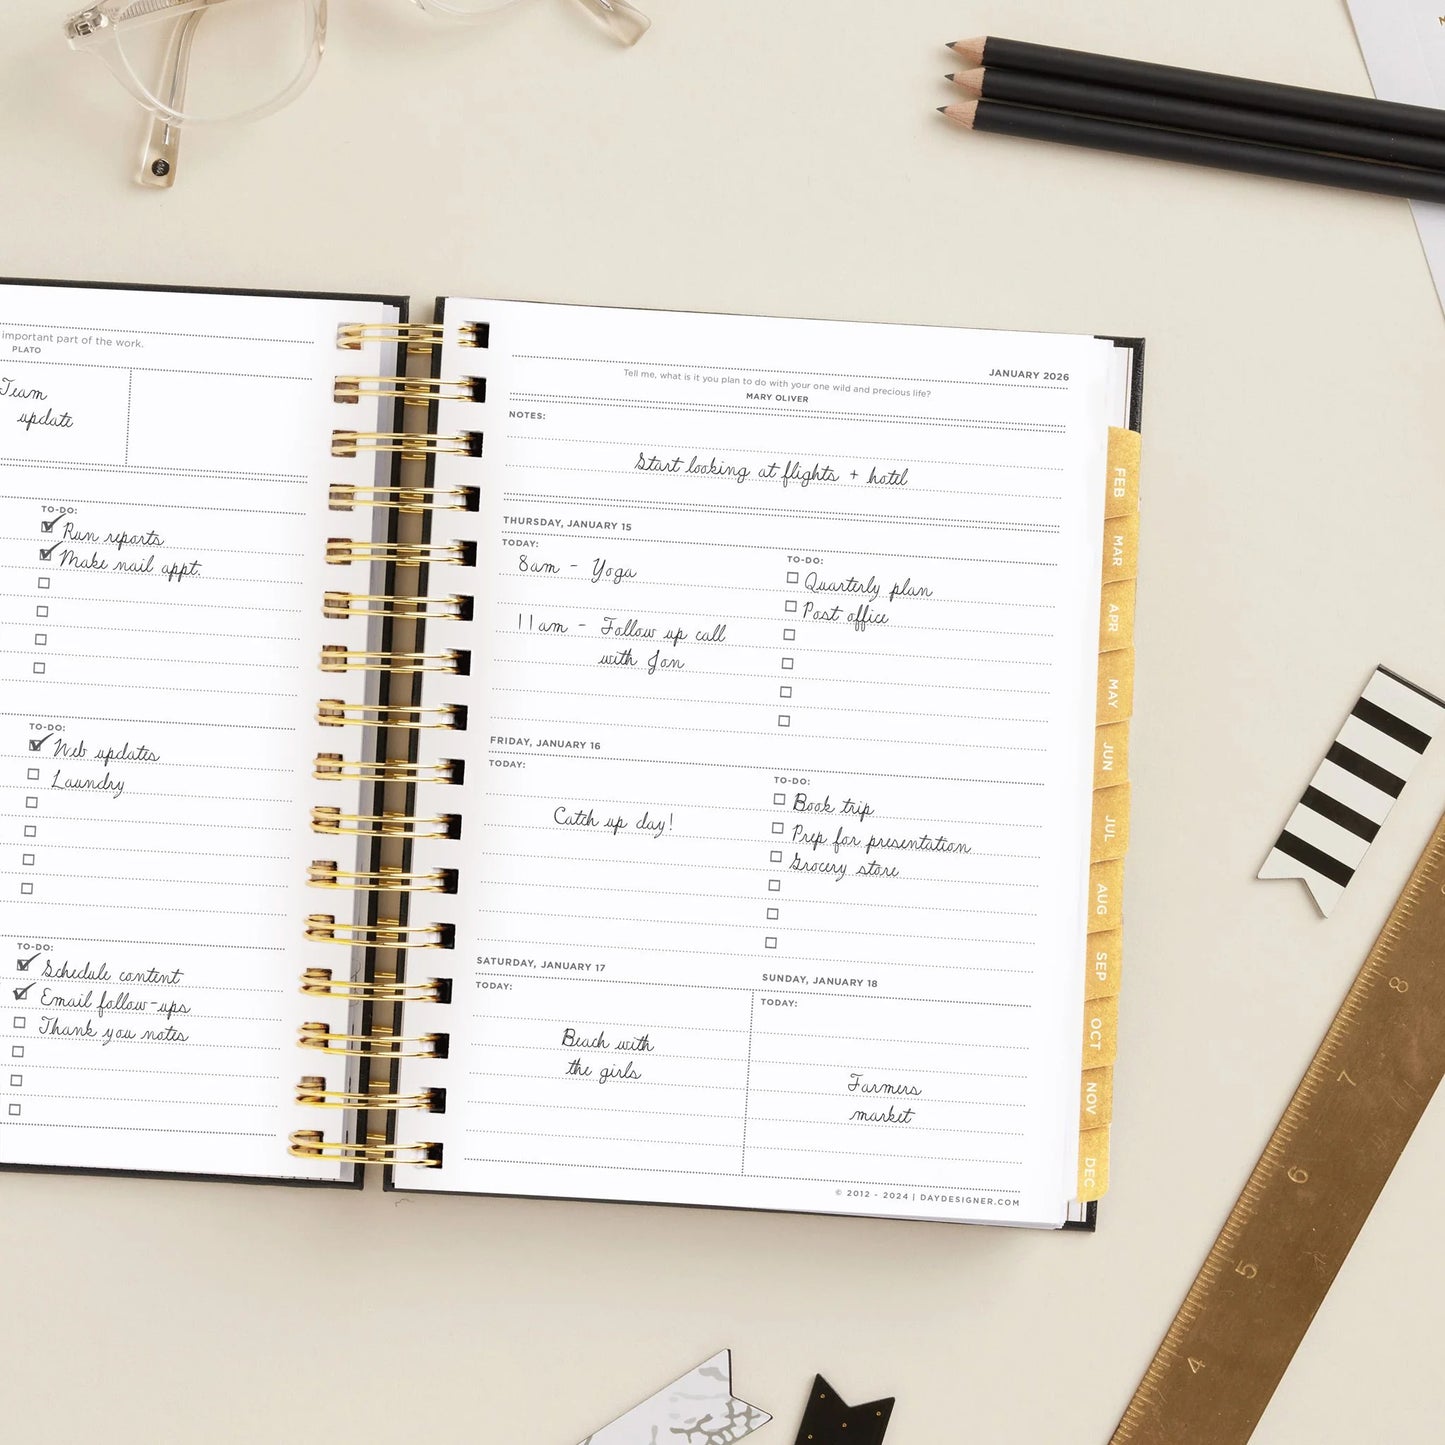 important part of the work.
PLATO
Team
update
TO-DO:
Run reports
Make nail appt.
TO-DO:
Web updates
Laundry
TO-DO:
Schedule content
Email follow-ups
Thank you notes
JANUARY 2026
Tell me, what is it you plan to do with your one wild and precious life?
MARY OLIVER
NOTES:
Start looking at flights + hotel
THURSDAY, JANUARY 15
TODAY:
8am - Yoga
11am - Follow up call
with Jan
TO-DO:
Quarterly plan
Post office
FRIDAY, JANUARY 16
TODAY:
Catch up day!
TO-DO:
Book trip
Prep for presentation
Grocery store
SATURDAY, JANUARY 17
TODAY:
Beach with
the girls
SUNDAY, JANUARY 18
TODAY:
Farmers
market
© 2012 - 2024 | DAYDESIGNER.COM
FEB
MAR
APR
MAY
JUN
JUL
AUG
SEP
OCT
NOV
DEC
8
7
6
5
4